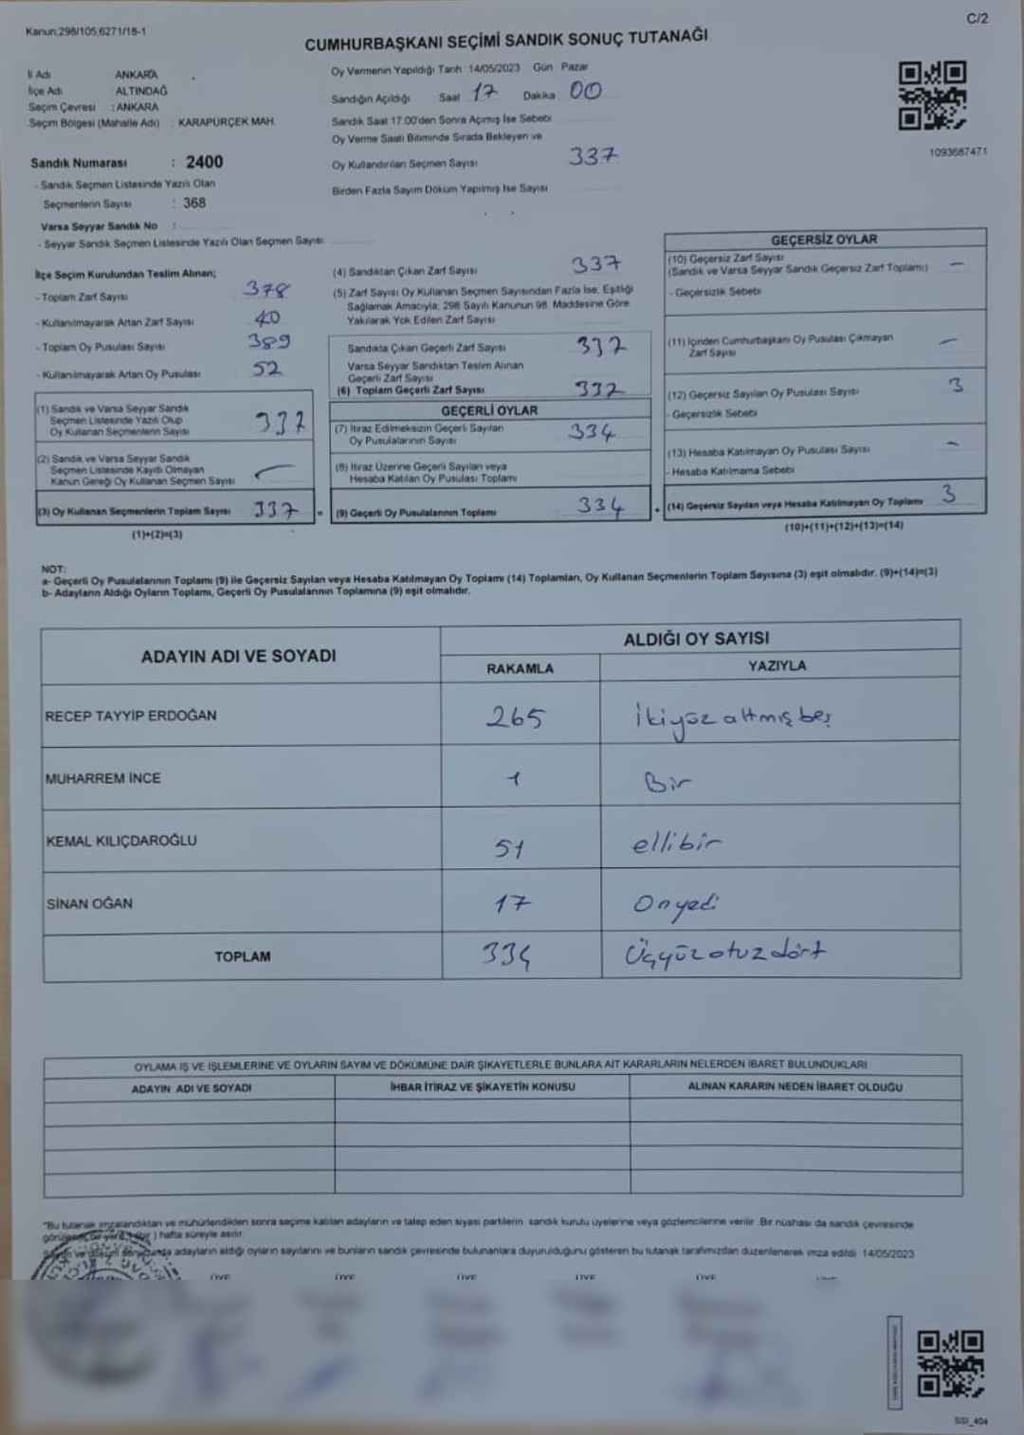 Kanun:298/105,6271/18-1
C/2
CUMHURBAŞKANI SEÇİMİ SANDIK SONUÇ TUTANAĞI
İl Adı : ANKARA
İlçe Adı : ALTINDAĞ
Seçim Çevresi : ANKARA
Seçim Bölgesi (Mahalle Adı) : KARAPÜRÇEK MAH.
Oy Vermenin Yapıldığı Tarih :14/05/2023 Gün Pazar
Sandığın Açıldığı Saat 17 Dakika 00
Sandık Saat 17.00'den Sonra Açılmış İse Sebebi
Oy Verme Saati Bitiminde Sırada Bekleyen ve
Oy Kullandırılan Seçmen Sayısı 337
Birden Fazla Sayım Döküm Yapılmış İse Sayısı
1093687471
Sandık Numarası : 2400
- Sandık Seçmen Listesinde Yazılı Olan
Seçmenlerin Sayısı : 368
Varsa Seyyar Sandık No :
- Seyyar Sandık Seçmen Listesinde Yazılı Olan Seçmen Sayısı:
İlçe Seçim Kurulundan Teslim Alınan;
- Toplam Zarf Sayısı 378
- Kullanılmayarak Artan Zarf Sayısı 40
- Toplam Oy Pusulası Sayısı 389
- Kullanılmayarak Artan Oy Pusulası 52
(1) Sandık ve Varsa Seyyar Sandık
Seçmen Listesinde Yazılı Olup
Oy Kullanan Seçmenlerin Sayısı 337
(2) Sandık ve Varsa Seyyar Sandık
Seçmen Listesinde Kayıtlı Olmayan
Kanun Gereği Oy Kullanan Seçmen Sayısı —
(3) Oy Kullanan Seçmenlerin Toplam Sayısı 337
(1)+(2)=(3)
(4) Sandıktan Çıkan Zarf Sayısı 337
(5) Zarf Sayısı Oy Kullanan Seçmen Sayısından Fazla İse, Eşitliği
Sağlamak Amacıyla; 298 Sayılı Kanunun 98. Maddesine Göre
Yakılarak Yok Edilen Zarf Sayısı
Sandıkta Çıkan Geçerli Zarf Sayısı 337
Varsa Seyyar Sandıktan Teslim Alınan
Geçerli Zarf Sayısı
(6) Toplam Geçerli Zarf Sayısı 337
GEÇERLİ OYLAR
(7) İtiraz Edilmeksizin Geçerli Sayılan
Oy Pusulalarının Sayısı 334
(8) İtiraz Üzerine Geçerli Sayılan veya
Hesaba Katılan Oy Pusulası Toplamı
(9) Geçerli Oy Pusulalarının Toplamı 334
GEÇERSİZ OYLAR
(10) Geçersiz Zarf Sayısı
(Sandık ve Varsa Seyyar Sandık Geçersiz Zarf Toplamı) —
- Geçersizlik Sebebi
(11) İçinden Cumhurbaşkanı Oy Pusulası Çıkmayan
Zarf Sayısı —
(12) Geçersiz Sayılan Oy Pusulası Sayısı 3
- Geçersizlik Sebebi
(13) Hesaba Katılmayan Oy Pusulası Sayısı —
- Hesaba Katılmama Sebebi
(14) Geçersiz Sayılan veya Hesaba Katılmayan Oy Toplamı 3
(10)+(11)+(12)+(13)=(14)
NOT:
a- Geçerli Oy Pusulalarının Toplamı (9) ile Geçersiz Sayılan veya Hesaba Katılmayan Oy Toplamı (14) Toplamları, Oy Kullanan Seçmenlerin Toplam Sayısına (3) eşit olmalıdır. (9)+(14)=(3)
b- Adayların Aldığı Oyların Toplamı, Geçerli Oy Pusulalarının Toplamına (9) eşit olmalıdır.
ADAYIN ADI VE SOYADI
ALDIĞI OY SAYISI
RAKAMLA YAZIYLA
RECEP TAYYİP ERDOĞAN 265 İkiyüzaltmışbeş
MUHARREM İNCE 1 Bir
KEMAL KILIÇDAROĞLU 51 ellibir
SİNAN OĞAN 17 Onyedi
TOPLAM 334 Üçyüzotuzdört
OYLAMA İŞ VE İŞLEMLERİNE VE OYLARIN SAYIM VE DÖKÜMÜNE DAİR ŞİKAYETLERLE BUNLARA AİT KARARLARIN NELERDEN İBARET BULUNDUKLARI
ADAYIN ADI VE SOYADI İHBAR İTİRAZ VE ŞİKAYETİN KONUSU ALINAN KARARIN NEDEN İBARET OLDUĞU
"Bu tutanak imzalandıktan ve mühürlendikten sonra seçime katılan adayların ve talep eden siyasi partilerin sandık kurulu üyelerine veya gözlemcilerine verilir. Bir nüshası da sandık çevresinde
hafta süreyle asılır.
adayların aldığı oyların sayılarını ve bunların sandık çevresinde bulunanlara duyurulduğunu gösteren bu tutanak tarafımızdan düzenlenerek imza edildi. 14/05/2023
ÜYE ÜYE ÜYE ÜYE ÜYE
SSI_404